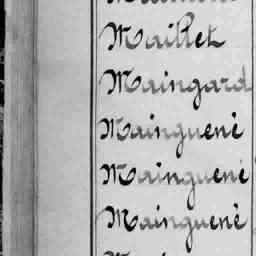 Maillet
Maingard
Mainguenè
Mainguenè
Mainguenè